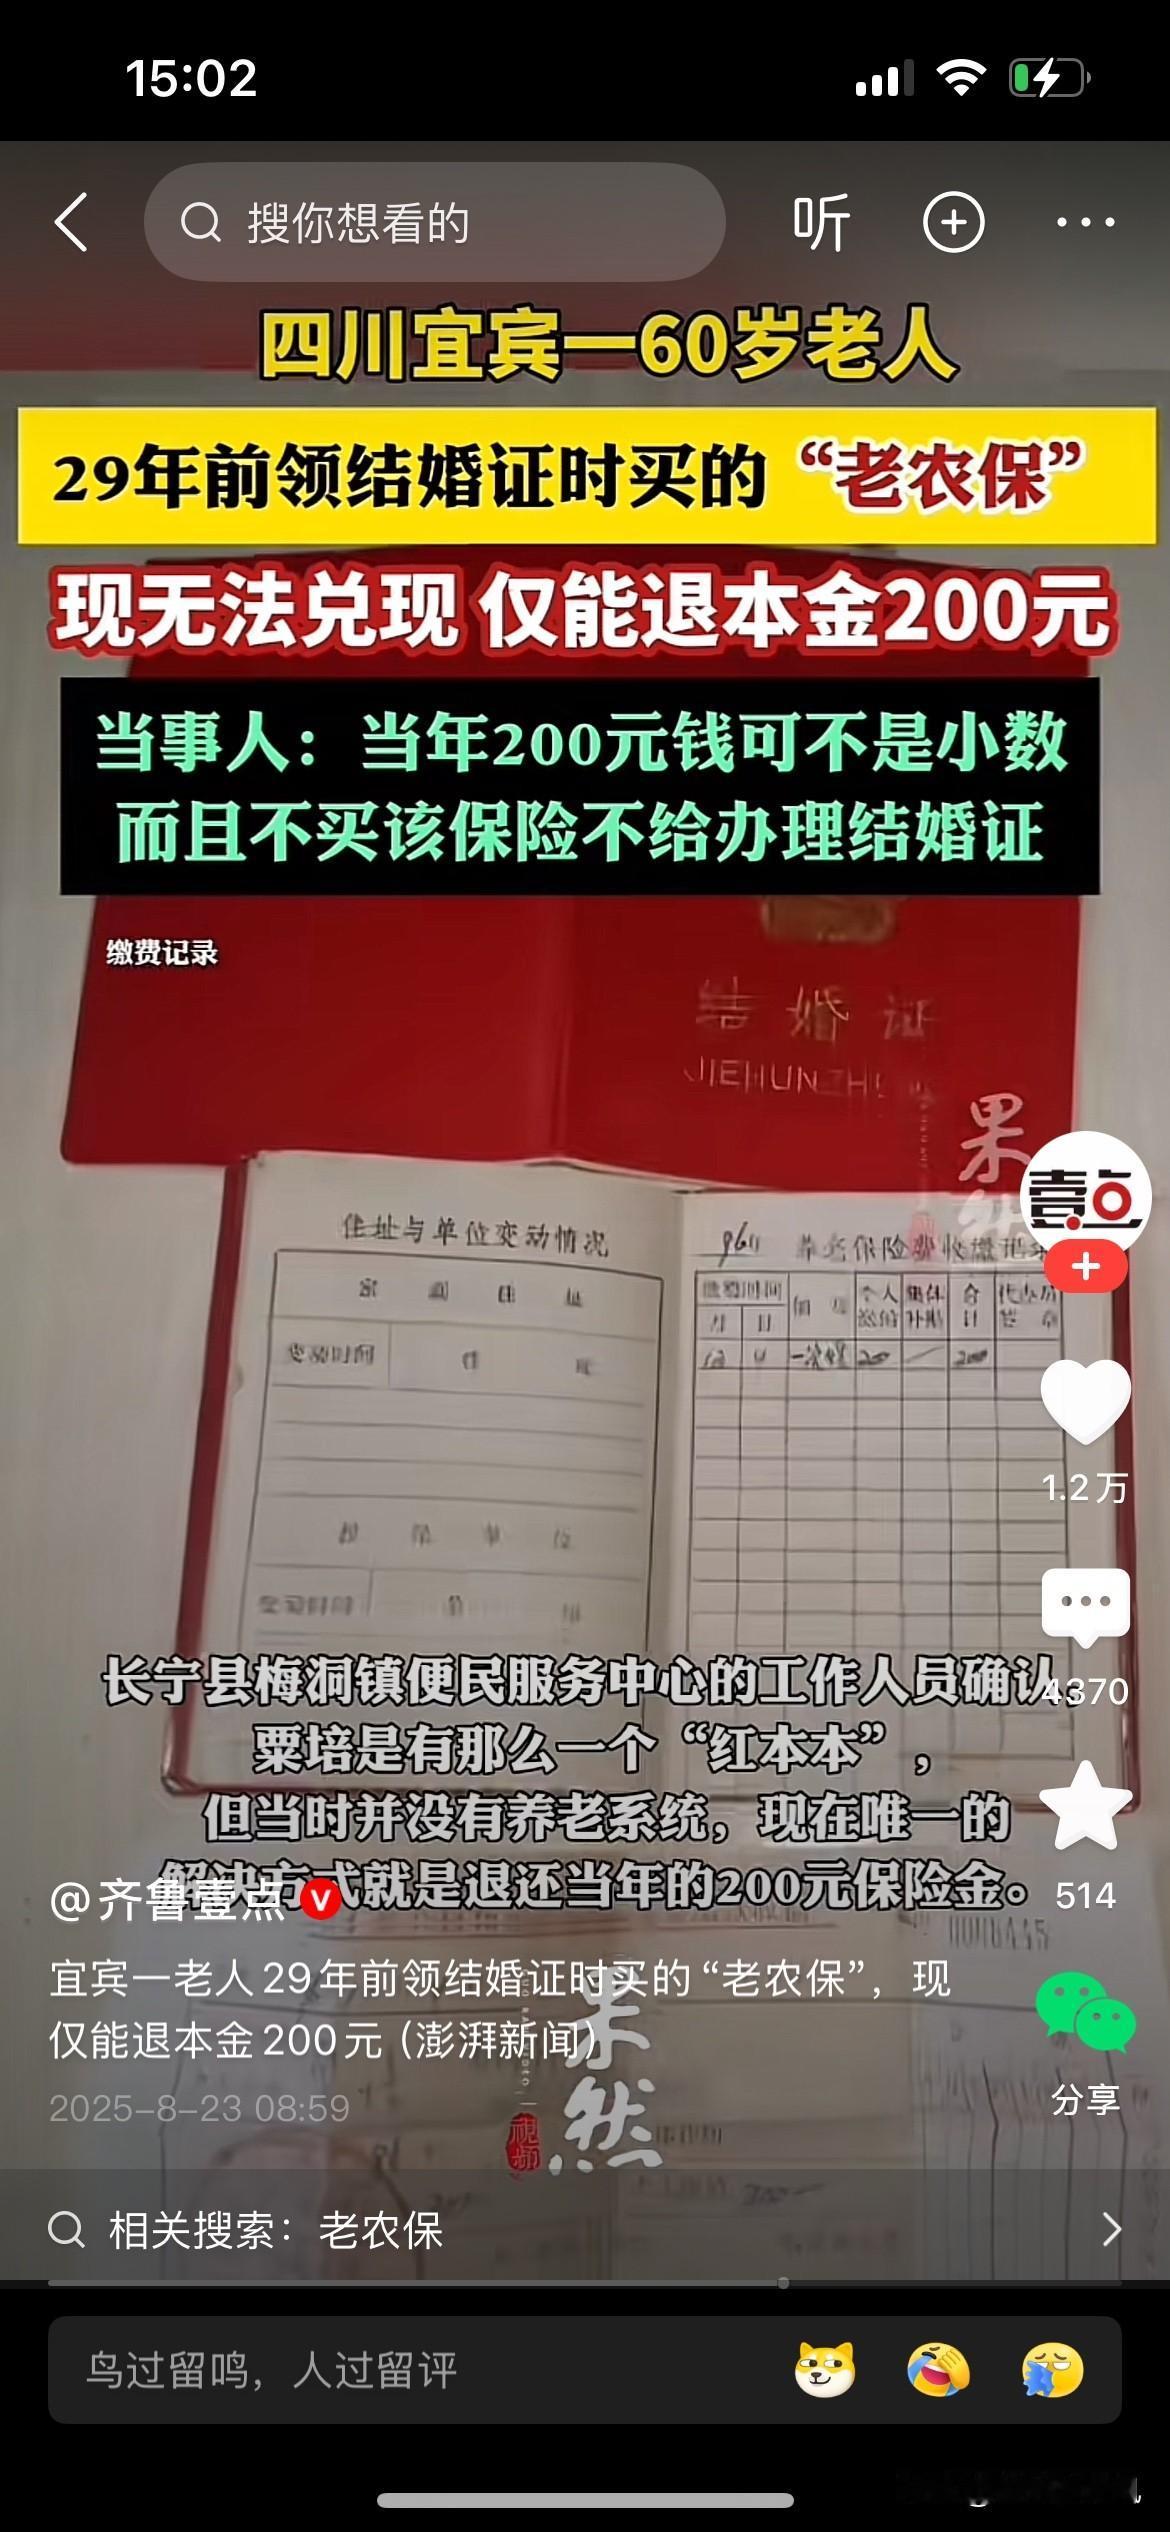 15:02
搜你想看的
听
四川宜宾一60岁老人
29年前领结婚证时买的“老农保”
现无法兑现 仅能退本金200元
当事人：当年200元钱可不是小数
而且不买该保险不给办理结婚证
缴费记录
结婚证
JIEHUNZH
果然
壹点
住址与单位变动情况
养老保险费收缴记录
家庭住址
缴费时间
个人
集体
合
月
日
补贴
计
变动时间
住
200
200
1.2万
长宁县梅洞镇便民服务中心的工作人员确认，
4370
粟培是有那么一个“红本本”，
但当时并没有养老系统，现在唯一的
解决方式就是退还当年的200元保险金。
@齐鲁壹点
514
宜宾一老人29年前领结婚证时买的“老农保”，现
仅能退本金200元 (澎湃新闻)
果然
视频
2025-8-23 08:59
分享
相关搜索：老农保
鸟过留鸣，人过留评